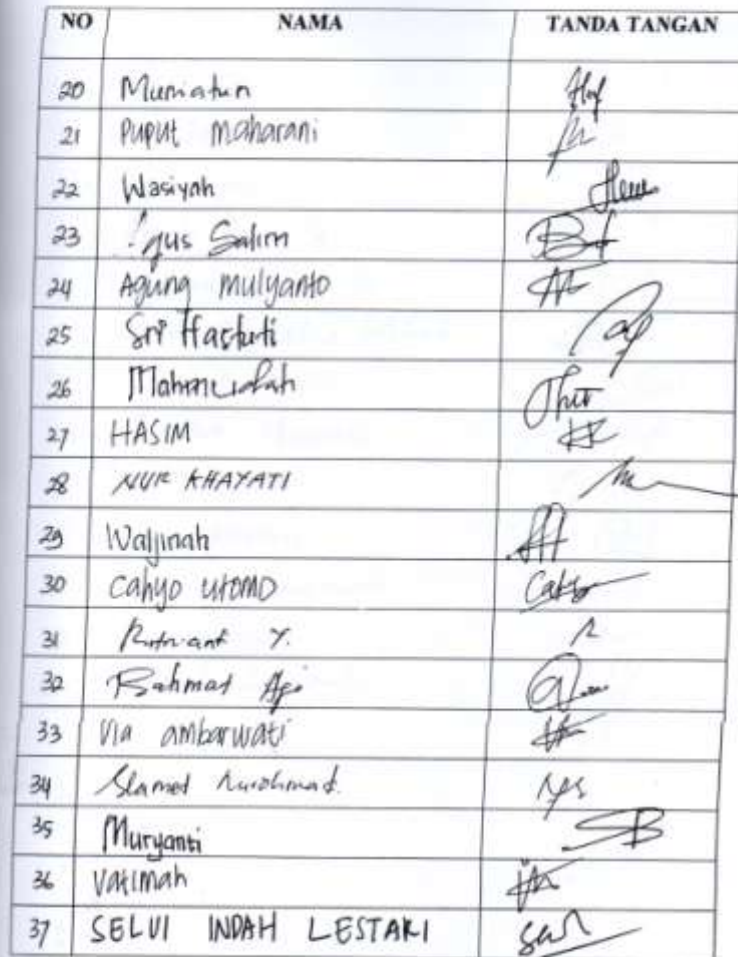 NO NAMA TANDA TANGAN
20 Muniatun
21 Puput Maharani
22 Wasiyah
23 Agus Salim
24 Agung Mulyanto
25 Sri Hastuti
26
27 HASIM
28 NUR KHAYATI
29 Waljinah
30 Cahyo Utomo
31 Y.
32 Rahmat Aji
33 Via ambarwati
34 Slamet Nurohmat.
35 Muryanti
36 Vatimah
37 SELVI INDAH LESTARI